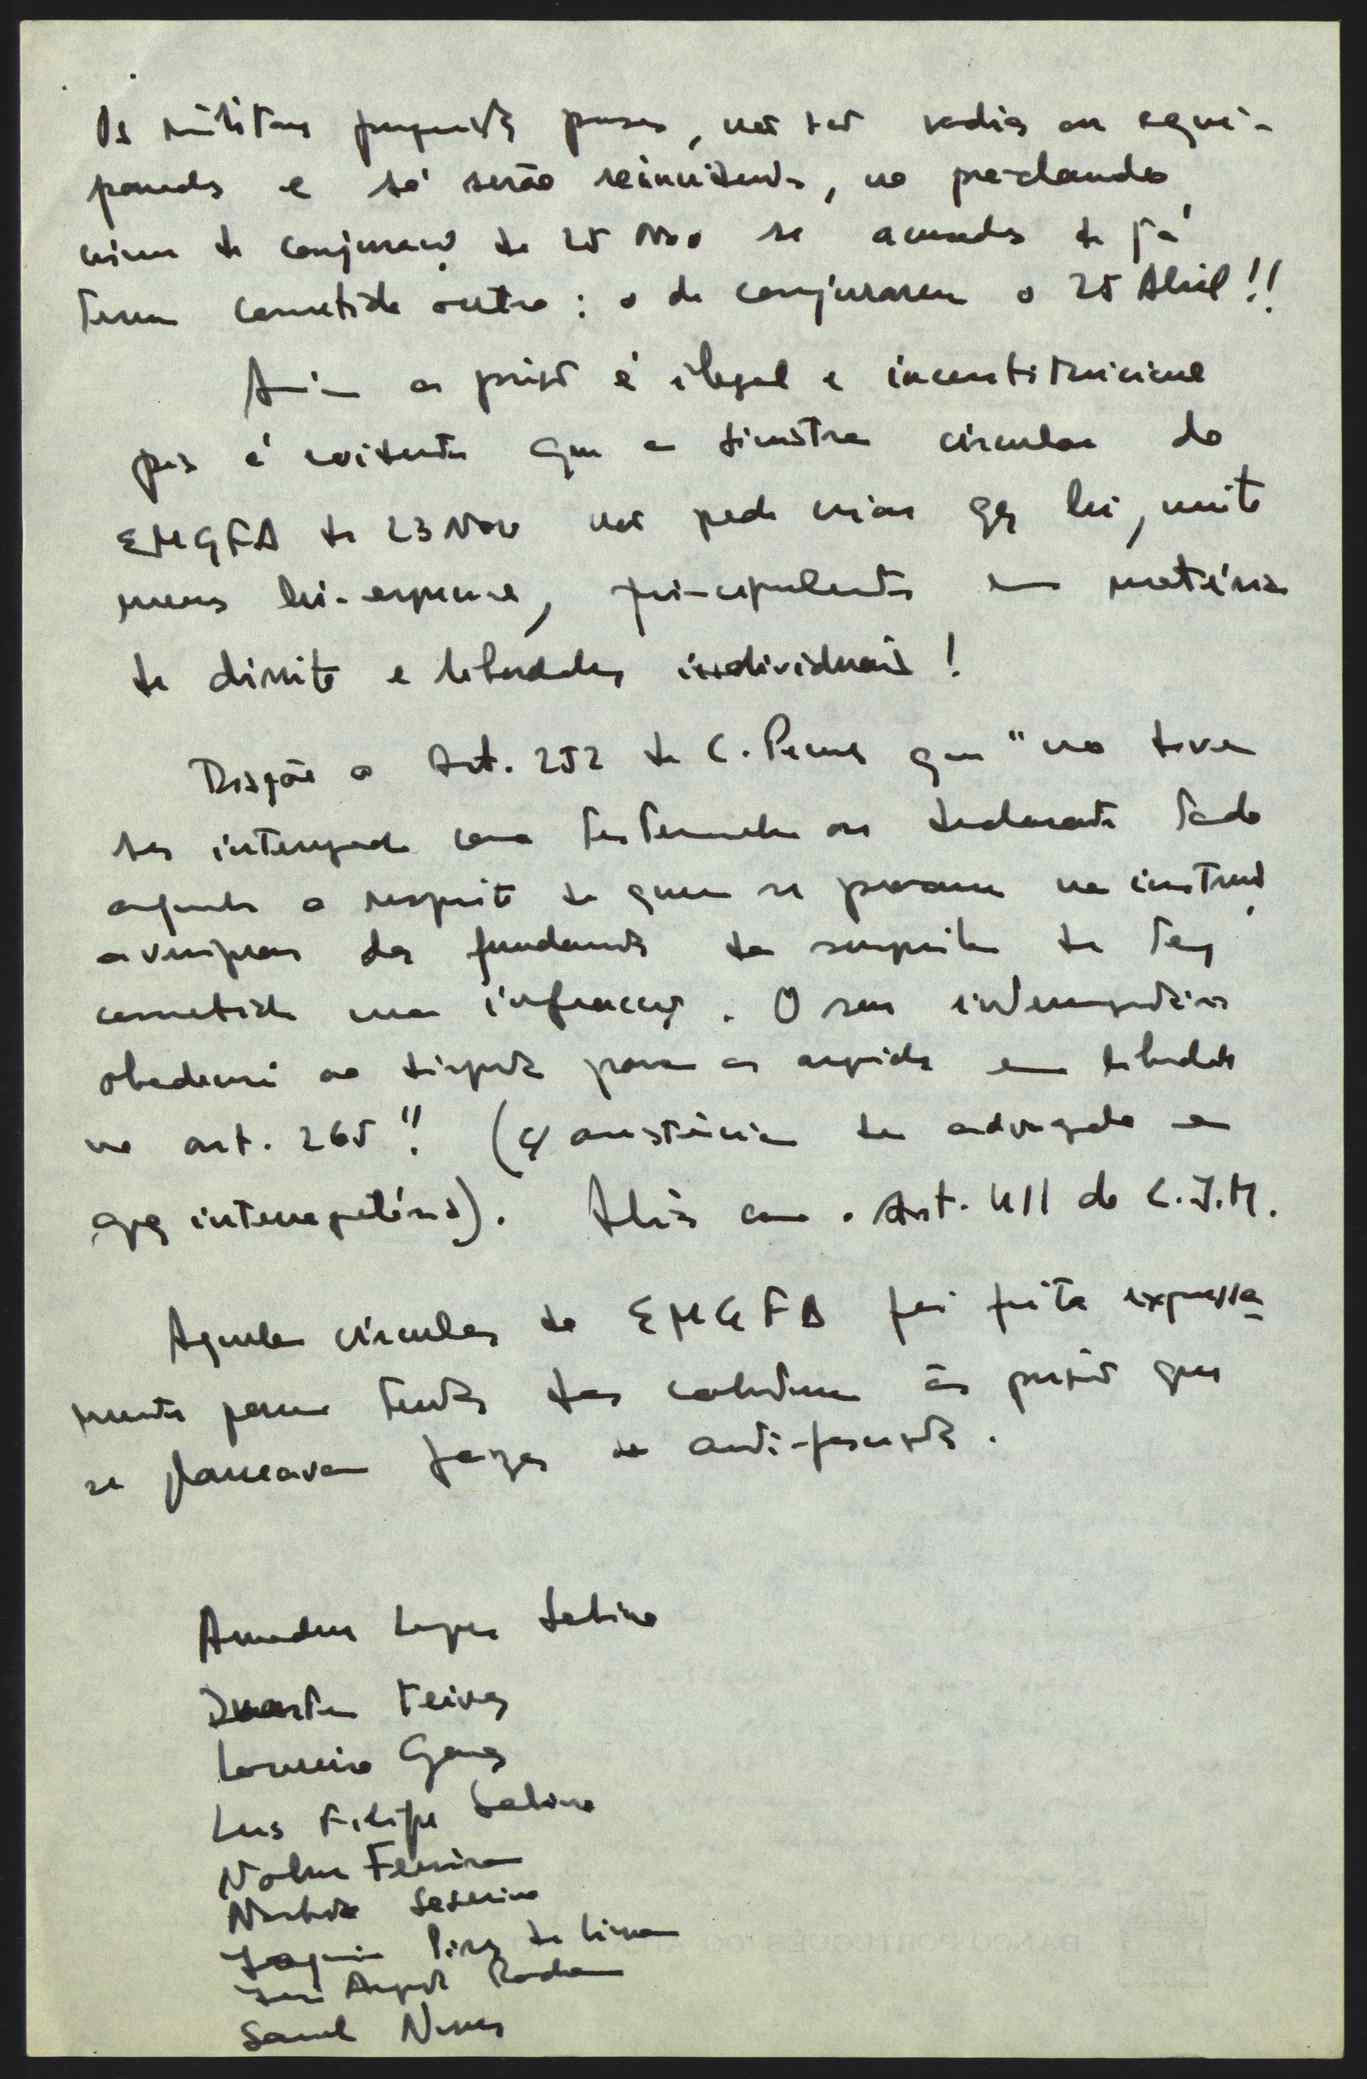 Os militares progressistas presos, não são vadios ou equi-
parados e só serão reincidentes, no proclamado
crime de conjuração de 25 Nov se acusados de já
terem cometido outro: o de conjurarem o 25 Abril!!
Assim a prisão é ilegal e inconstitucional
pois é evidente que a sinistra circular do
EMGFA de 23 Nov não pode criar qq lei, muito
menos lei-expressa, principalmente em matéria
de direito e liberdades individuais!
Dispõe o Art. 252 do C. Penal que "não deve
ser interrogado como testemunha ou declarante todo
aquele a respeito de quem se procura na instrução
averiguar dos fundamentos da suspeita de ter
cometido uma infracção. O seu interrogatório
obedecerá ao disposto para os arguidos em liberdade
no art. 265". (c/ assistência de advogado em
qq interrogatório). Aliás como o Art. 411 do C.J.M.
Aquela circular do EMGFA foi feita expressa-
mente para tentar dar cobertura às prisões que
se planeavam fazer de anti-fascistas.
Amadeu Lopes Sabino
Duarte Teives
Loureiro Gomes
Luis Filipe Sabino
Ferreira
Severino
Joaquim Pires de Lima
José Augusto Rocha
Saul Nunes